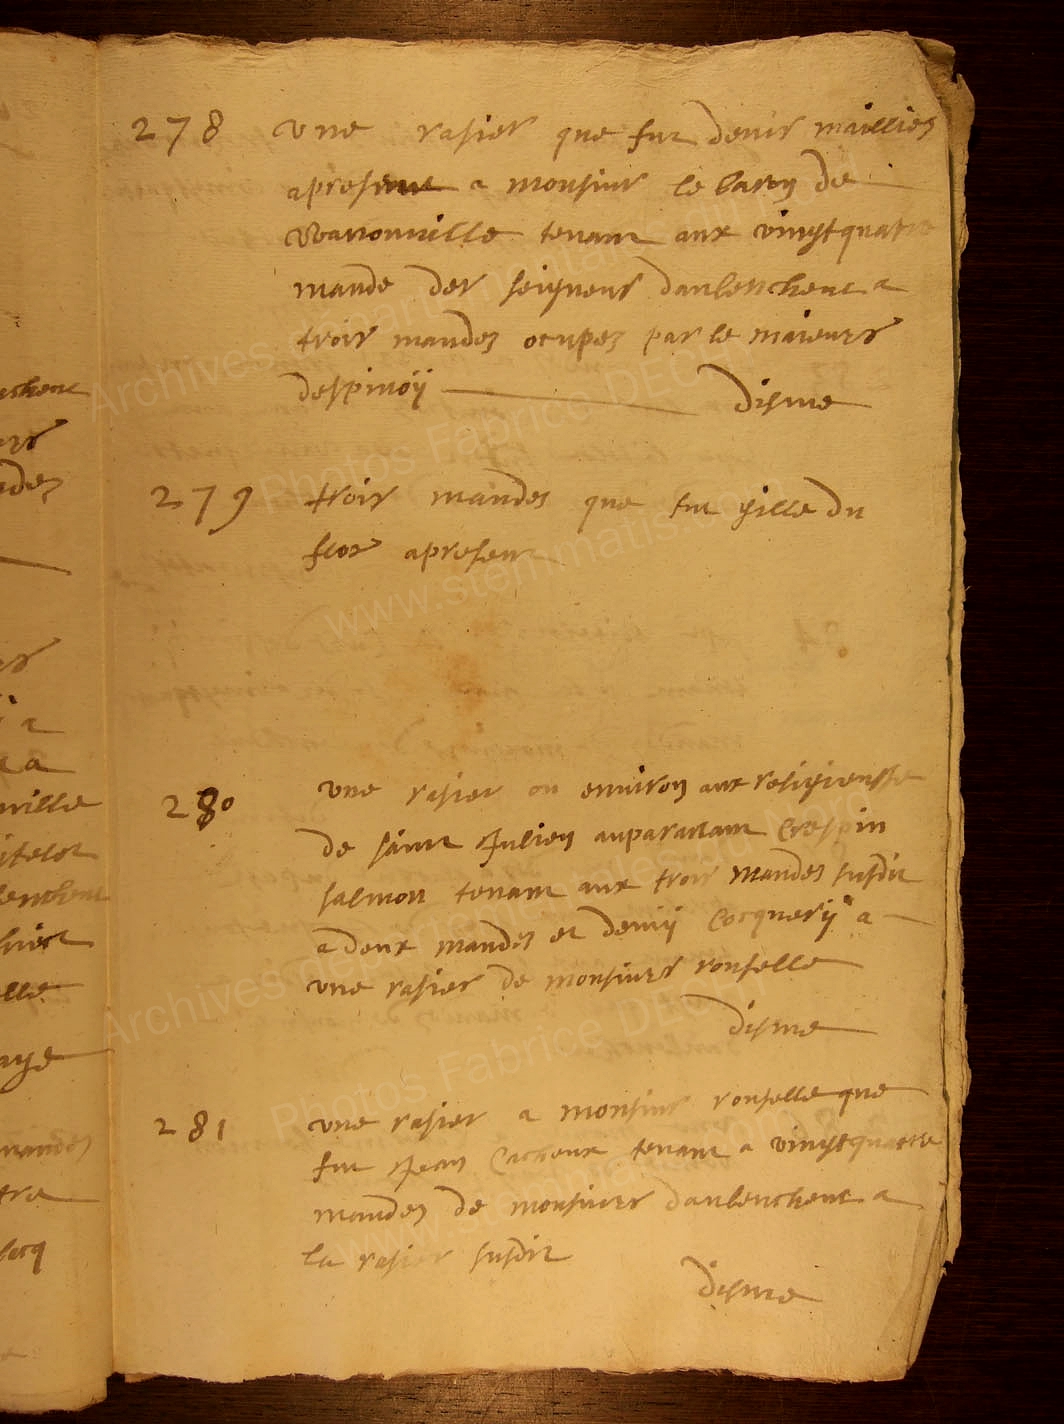 278 une rasier que fut denis maillies
apresent a monsiur le baron de
wanonville tenant aux vingtquattre
mande des seigneur daubencheut a
trois mandes ocupes par le maieurs
despinoÿ disme
279 trois mandes que fut gille du
flos apresent
280 une rasier ou environ aux religieusse
de saint Julien auparavant Crespin
salmon tenant aux trois mandes susdit
a deux mandes et demÿ Cocquerÿ a
une rasier de monsiurs rouselle
disme
281 une rasier a monsiur rouselle que
fut Jean Cacheux tenant a vingtquattre
mandes de monsiurs daubencheut a
la rasier susdit
disme
Archives départementales du Nord
Photos Fabrice DECH
www.stemmatis.com